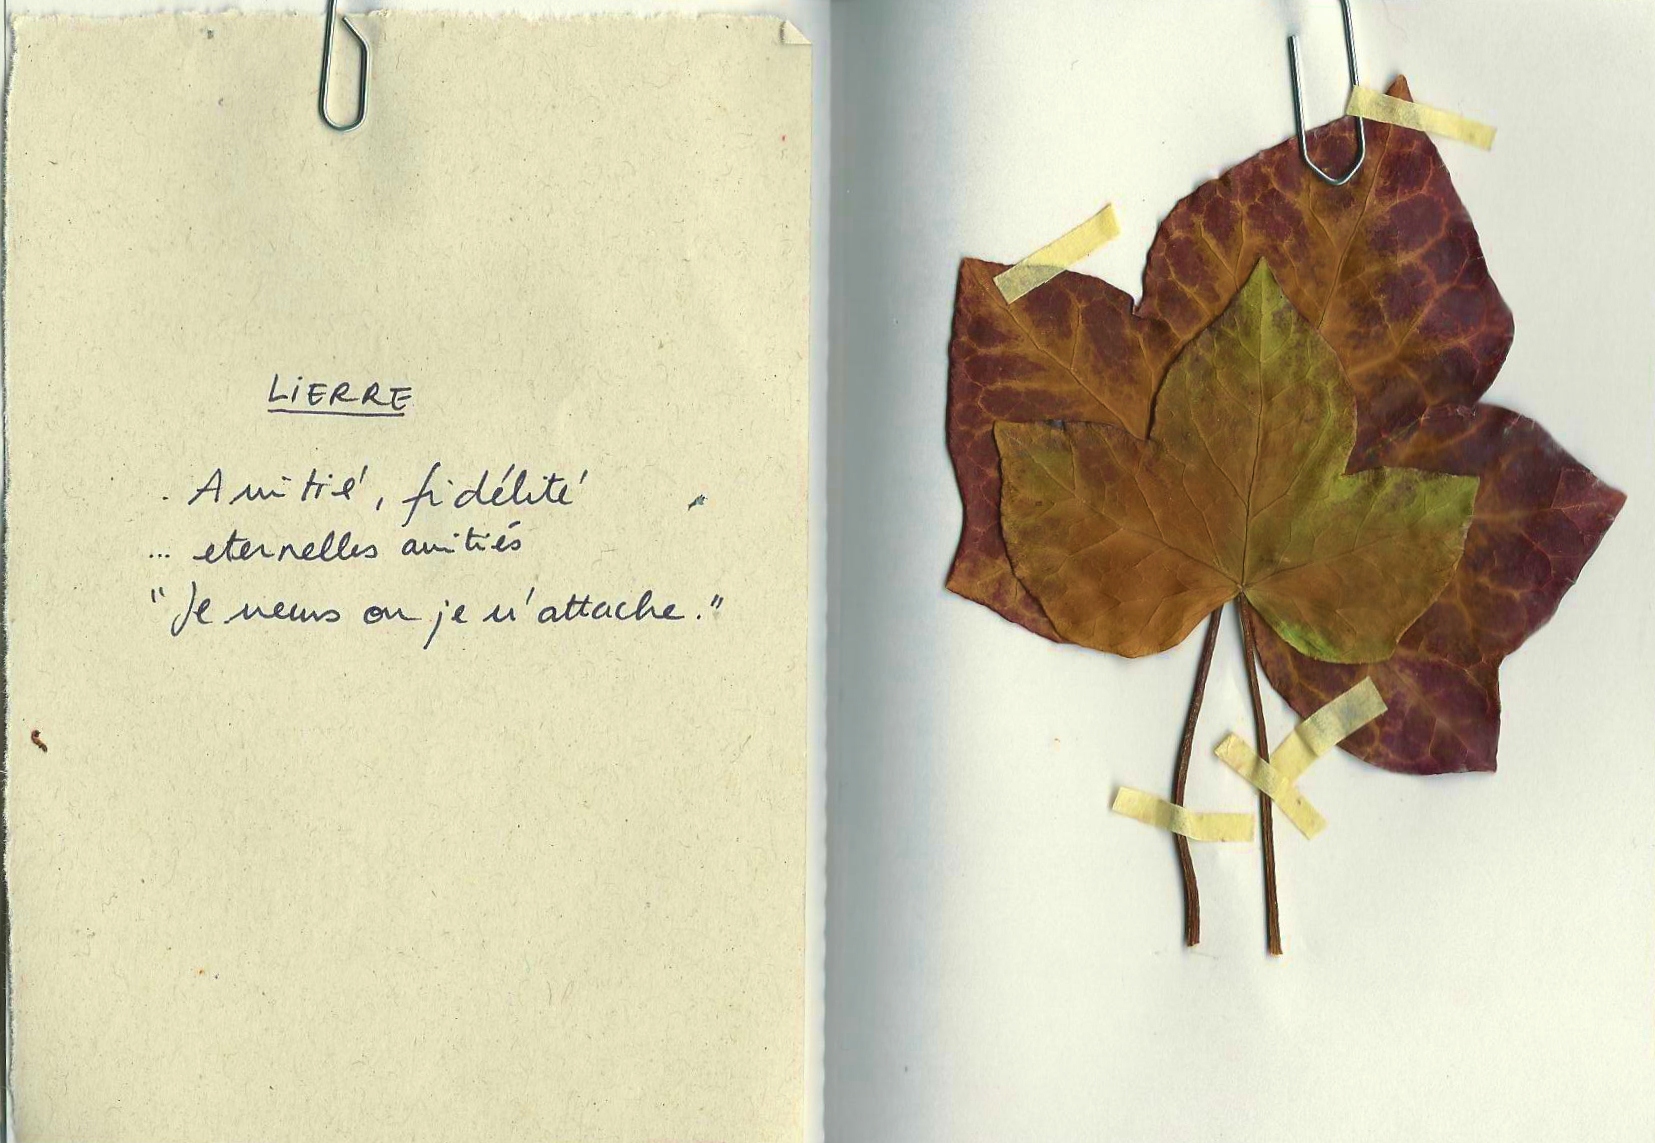 LiERRE
. Amitié, fidélité
... eternelles amitiés
"Je meurs ou je m'attache."